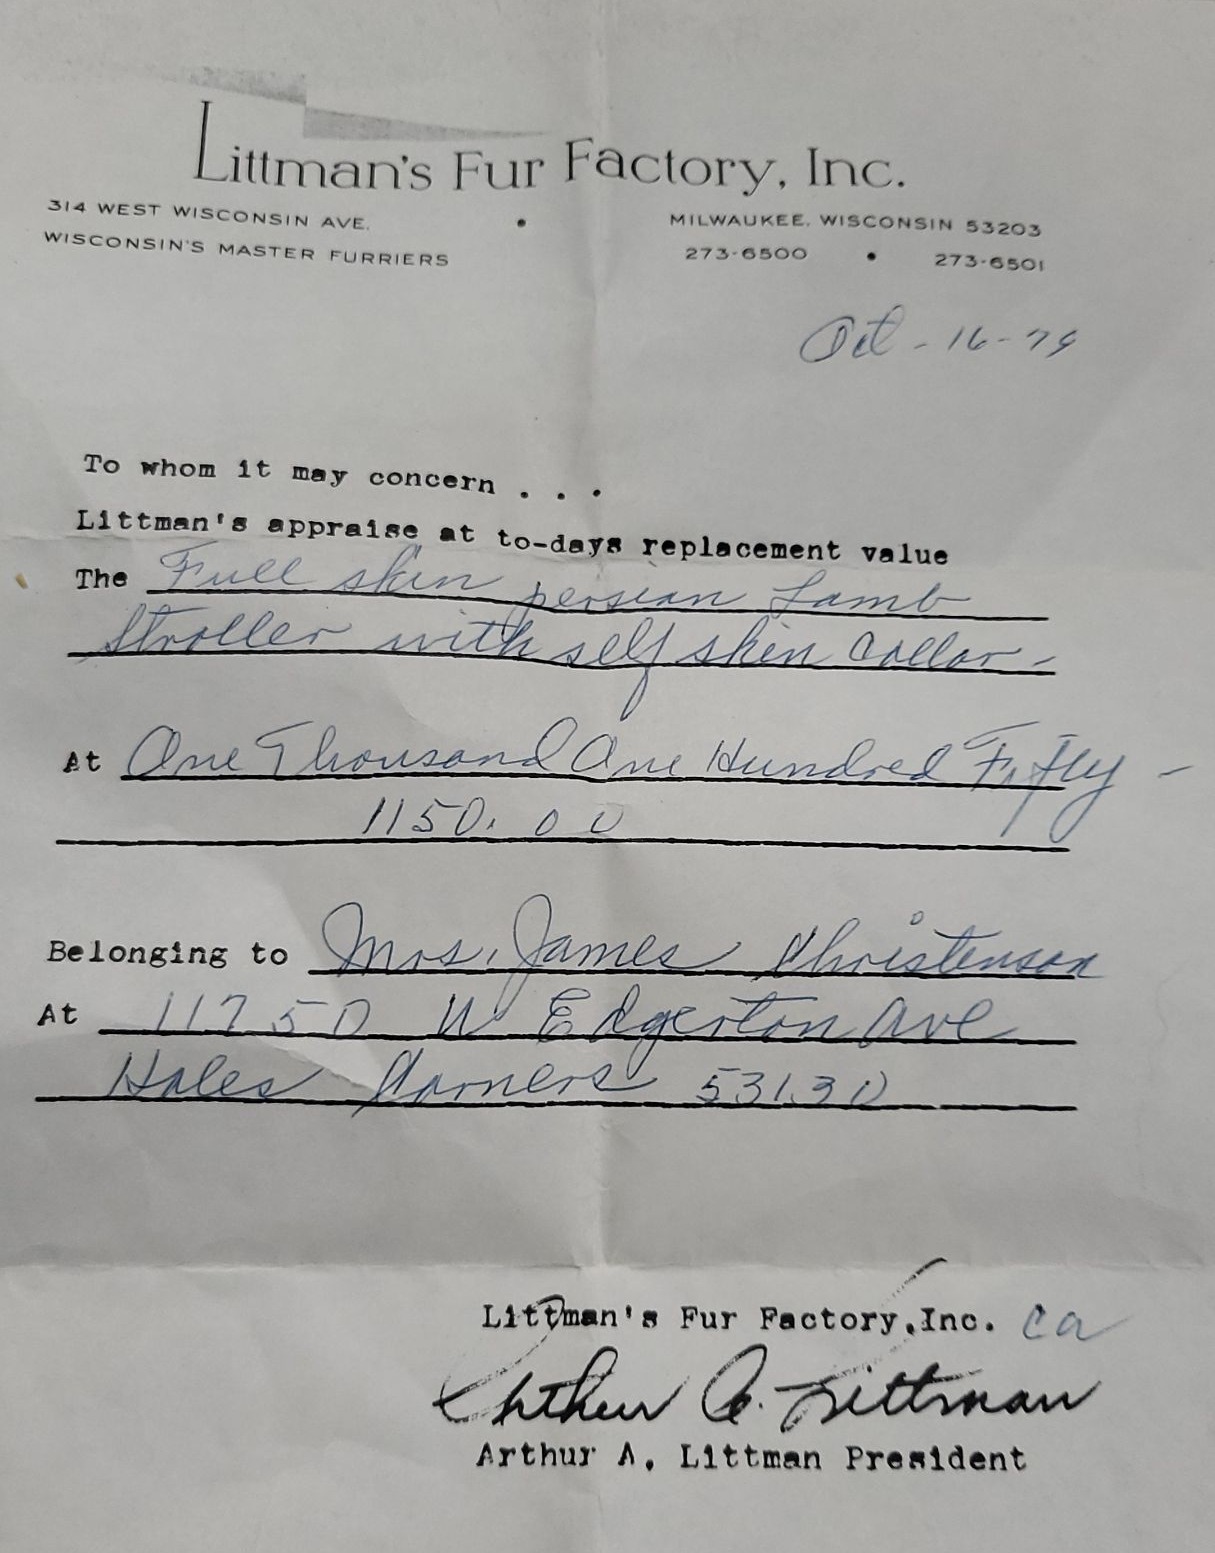 Littman's Fur Factory, Inc.
314 WEST WISCONSIN AVE. • MILWAUKEE, WISCONSIN 53203
WISCONSIN'S MASTER FURRIERS 273-6500 • 273-6501
Oct - 16 - 79
To whom it may concern . . .
Littman's appraise at to-days replacement value
The Full skin persian Lamb
Stroller with self skin Collar -
At One Thousand One Hundred Fifty -
1150.00
Belonging to Mrs. James Christenson
At 11750 W Edgerton Ave
Hales Corners 53130
Littman's Fur Factory,Inc. Ca
Arthur A. Littman
Arthur A. Littman President